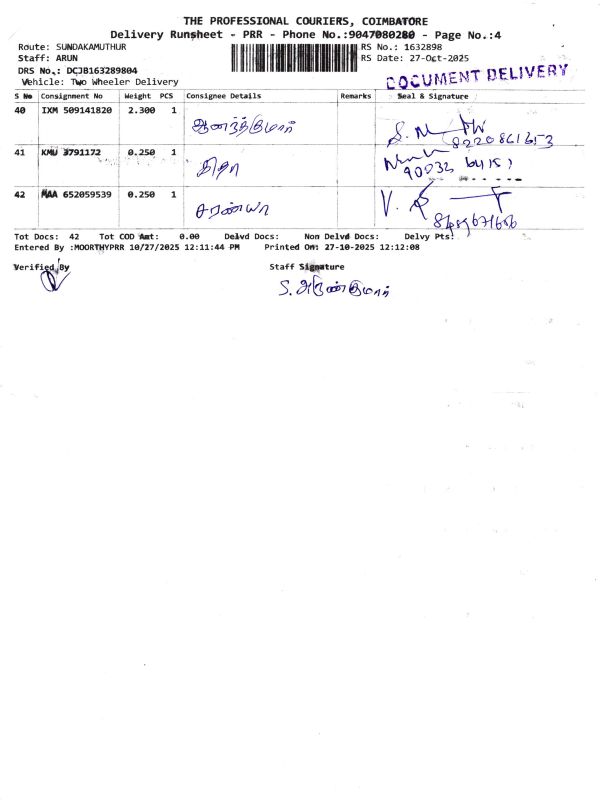 THE PROFESSIONAL COURIERS, COIMBATORE
Delivery Runsheet - PRR - Phone No.:9047080280 - Page No.:4
Route: SUNDAKAMUTHUR
RS No.: 1632898
Staff: ARUN
RS Date: 27-Oct-2025
DRS No.: DCJB163289804
DOCUMENT DELIVERY
Vehicle: Two Wheeler Delivery
S No Consignment No Weight PCS Consignee Details Remarks Seal & Signature
40 IXM 509141820 2.300 1 ஆனந்த்குமார்
8220861653
41 KMU 3791172 0.250 1
90032
42 MAA 652059539 0.250 1 சரண்யா
Tot Docs: 42 Tot COD Amt: 0.00 Delvd Docs: Non Delvd Docs: Delvy Pts:
Entered By :MOORTHYPRR 10/27/2025 12:11:44 PM Printed On: 27-10-2025 12:12:08
Verified By Staff Signature
S. அருண்குமார்